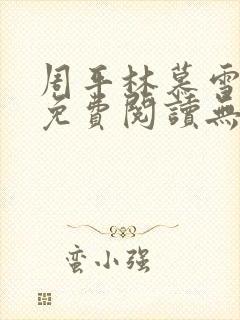 周平林慕雪
免費閱讀無
蛮小强